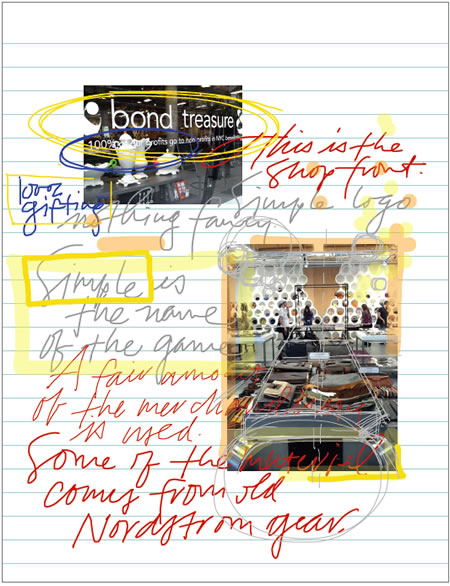 bond treasure
100% of our profits go to non profits in NYC
This is the
shop front.
100%
gifting
Simple logo
nothing fancy.
Simple is
the name
of the game
A fair amount
of the merchandise
is used.
Some of the material
comes from old
Nordstrom gear.